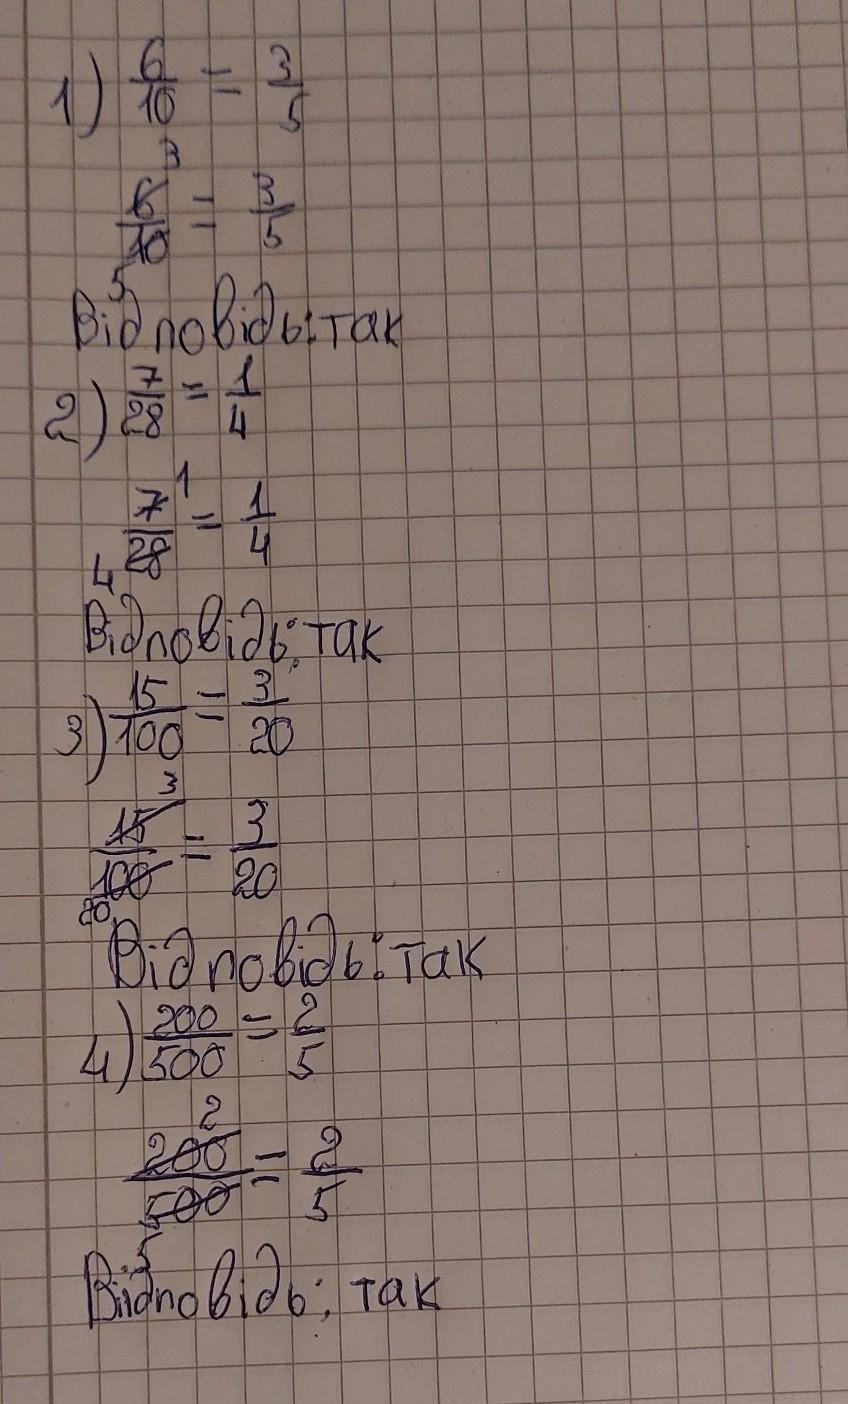 1) 6/10 = 3/5
6/10 3 5 = 3/5
Відповідь: так
2) 7/28 = 1/4
7/28 1 4 = 1/4
Відповідь: так
3) 15/100 = 3/20
15/100 3 20 = 3/20
Відповідь: так
4) 200/500 = 2/5
200/500 2 5 = 2/5
Відповідь: так